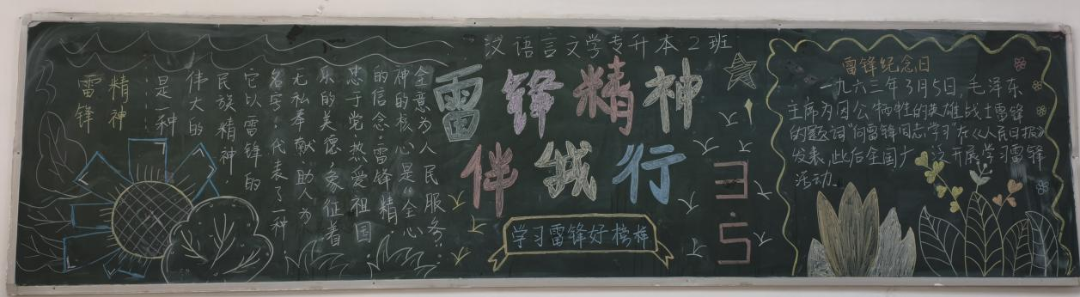 汉语言文学专升本2班
雷锋精神
伴我行
3.5
学习雷锋好榜样
雷锋
精神
是一种
伟大的
民族精神,
它以雷锋的
名字,代表了一种
无私奉献,助人为
乐的美德,象征着
忠于党,热爱祖国
的信念。雷锋精
神的核心是“全心
全意为人民服务”
雷锋纪念日
一九六三年3月5日,毛泽东
主席为因公牺牲的英雄战士雷锋
的题词“向雷锋同志学习”在《人民日报》
发表,此后全国广泛开展学习雷锋
活动.